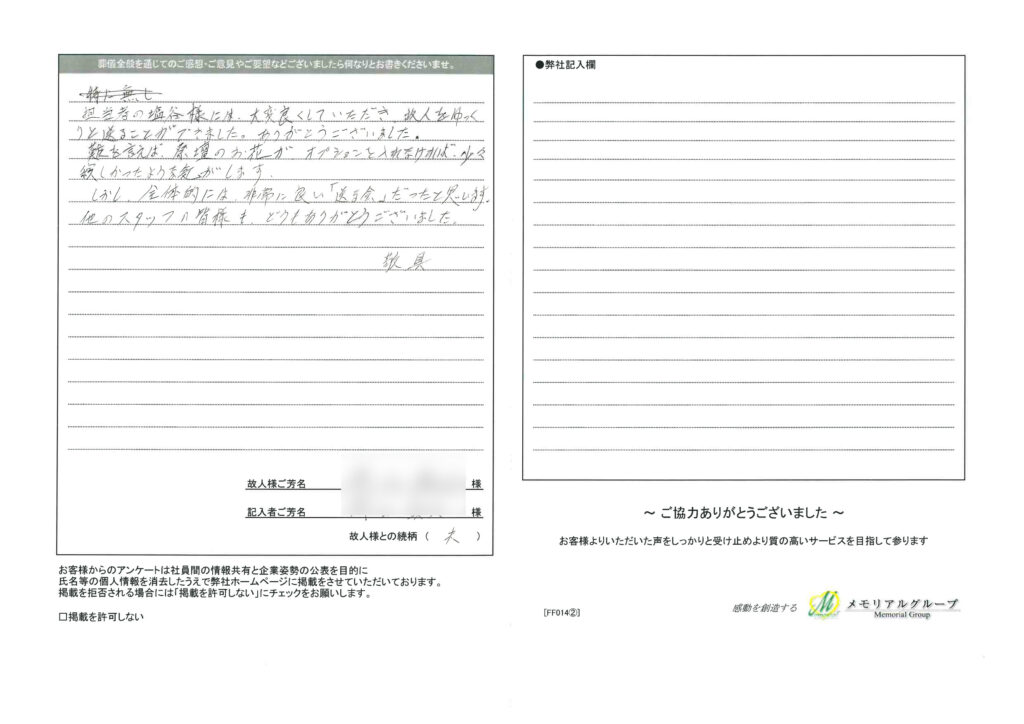 葬儀全般を通じてのご感想・ご意見やご要望などございましたら何なりとお書きくださいませ。
特に無し
担当者の塩谷様には、大変良くしていただき、故人をゆっく
りと送ることができました。ありがとうございました。
難を言えば、祭壇のお花が オプションを入れなければ、少々
寂しかったような気がします。
しかし、全体的には、非常に良い「送る会」だったと思います。
他のスタッフの皆様も、どうもありがとうございました。
敬具
故人様ご芳名 様
記入者ご芳名 様
故人様との続柄 ( 夫 )
お客様からのアンケートは社員間の情報共有と企業姿勢の公表を目的に
氏名等の個人情報を消去したうえで弊社ホームページに掲載をさせていただいております。
掲載を拒否される場合には「掲載を許可しない」にチェックをお願いします。
□掲載を許可しない
●弊社記入欄
～ ご協力ありがとうございました ～
お客様よりいただいた声をしっかりと受け止めより質の高いサービスを目指して参ります
[FF014②]
感動を創造する
メモリアルグループ
Memorial Group